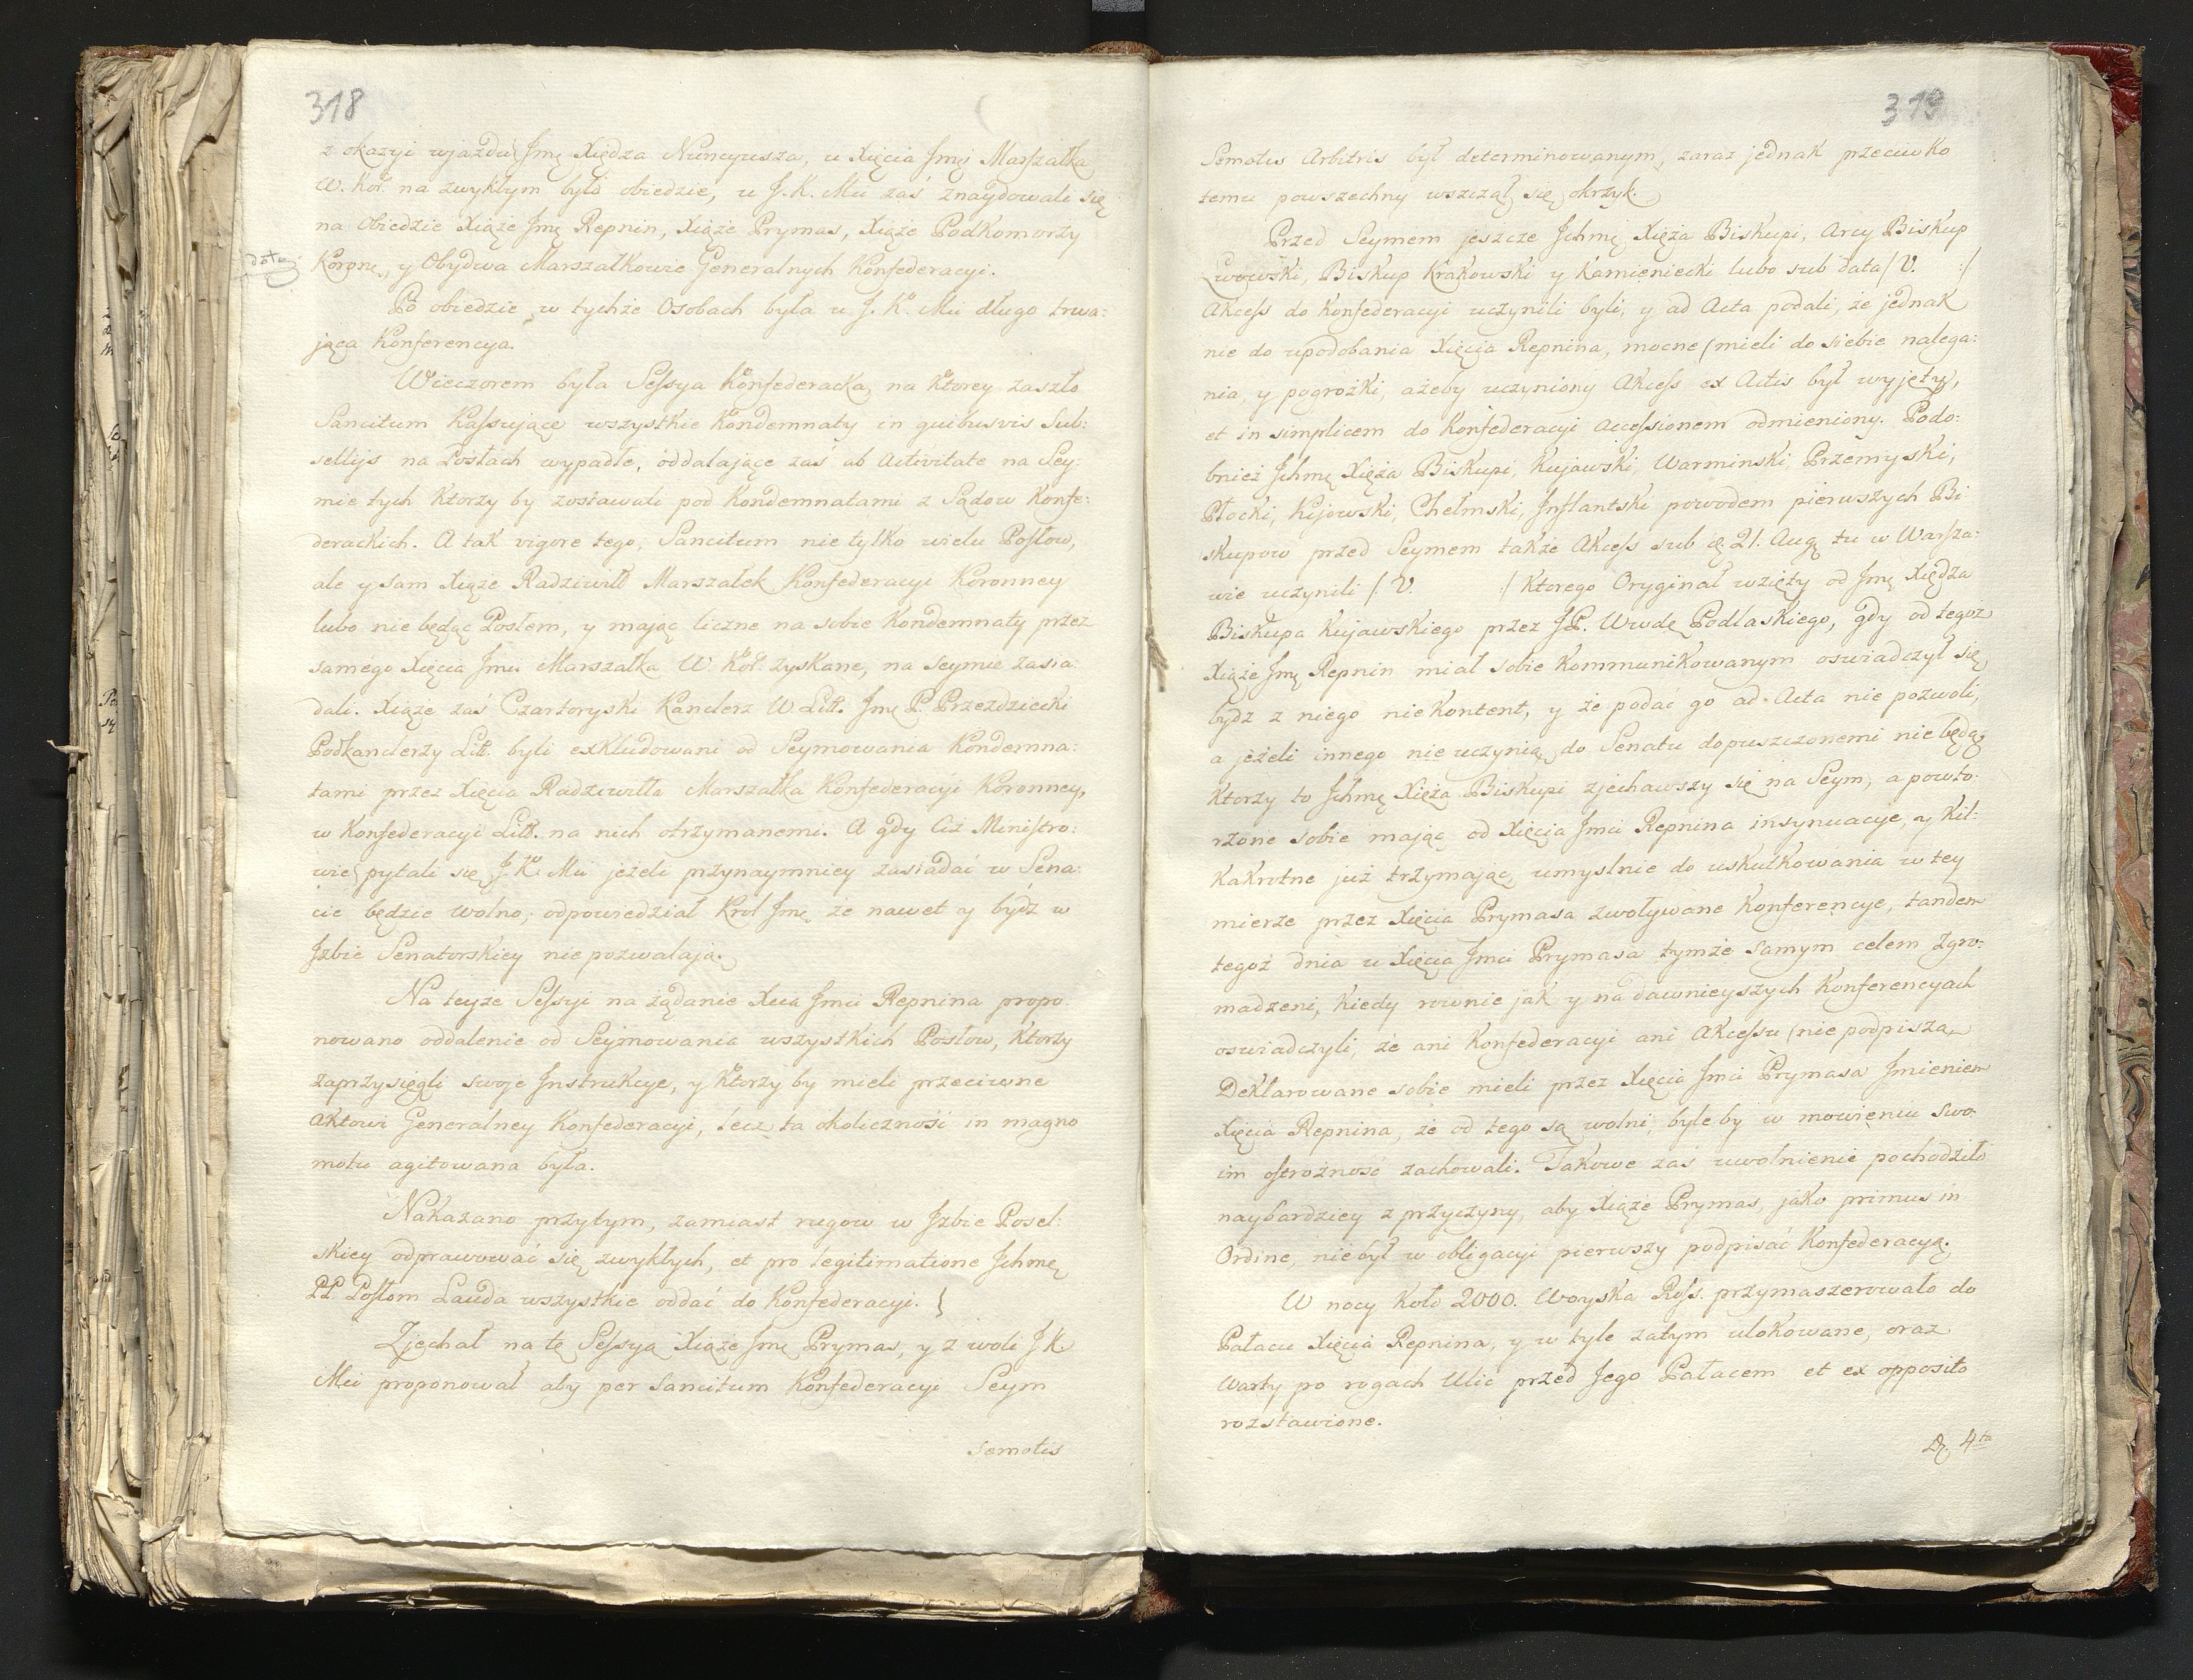 318
z okazyi wjazdu Jmę Xiędza Nuncyusza, u Xięcia Jmći Marszałka
W. Kor. na zwykłym było obiedzie, u J. K. Mci zaś znaydowali się
na Obiedzie Xiąże Jmę Repnin, Xiąże Prymas, Xiąże Podkomorzy
Koronę, y Obydwa Marszałkowie Generalnych Konfederacyi.
Po obiedzie w tychże Osobach była u J. K. Mci długo trwa:
jąca Konferencya.
Wieczorem była Sessya Konfederacka, na ktorey zaszło
Sancitum Kassujące wszystkie Kondemnaty in quibusvis Sub:
sellijs na Posłach wypadłe, oddalające zaś ab Activitate na Sey:
mie tych Ktorzy by zostawali pod Kondemnatami z Sądow Konfe:
derackich. A tak vigore tego, Sancitum nie tylko wielu Posłow,
ale y sam Xiąże Radziwiłł Marszałek Konfederacyi Koronney
lubo nie będąc Posłem, y mając liczne na sobie Kondemnaty przez
samego Xięcia Jmci Marszałka W. Kor. zyskane, na Seymie zasia:
dali. Xiąże zaś Czartoryski Kanclerz W Litt. Jmę P. Przezdziecki
Podkanclerzy Litt. byli exkludowani od Seymowania Kondemna:
tami przez Xięcia Radziwiłła Marszałka Konfederacyi Koronney,
w Konfederacyi Litt. na nich otrzymanemi. A gdy Ciż Ministro:
wie pytali się J. K. Mci jeżeli przynaymniey zasiadać w Sena:
cie będzie wolno, odpowiedział Krol Jmę że nawet y bydź w
Jzbie Senatorskiey nie pozwalają.
Na teyże Sessyi na żądanie Xcia Jmci Repnina propo:
nowano oddalenie od Seymowania wszystkich Posłow, Ktorzy
zaprzysięgli swoje Jnstrukcye, y Ktorzy by mieli przeciwne
Aktowi Generalney Konfederacyi, lecz ta okoliczność in magno
motu agitowana była.
Nakazano przytym, zamiast rugow w Jzbie Posel:
skiey odprawować się zwykłych, et pro legitimatione Jchmę
PP Posłom Lauda wszystkie oddać do Konfederacyi. }
Zjechał na tę Sessyą Xiąże Jmę Prymas, y z woli J K.
Mci proponował aby per Sancitum Konfederacyi Seym
semotis
319
Semotis Arbitris był determinowanym, zaraz jednak przeciwko
temu powszechny wszczął się okrzyk.
Przed Seymem jeszcze Jchmę Xięża Biskupi, Arcy Biskup
Lwowski, Biskup Krakowski y Kamieniecki lubo sub data /: V. :/
Akcess do Konfederacyi uczynili byli, y ad Acta podali, że jednak
nie do upodobania Xięcia Repnina, mocne mieli do siebie nalega:
nia, y pogrożki, ażeby uczyniony Akcess ex Actis był wyjęty,
et in simplicem do Konfederacyi accessionem odmieniony. Podo:
bnież Jchmę Xięża Biskupi, Kujawski, Warminski, Przemyski,
Płocki, Kijowski, Chełmski, Jnflantski powodem pierwszych Bi
skupow przed Seymem także Akcess sub d. 21. Aug. tu w Warsza:
wie uczynili /: V. :/ Ktorego Oryginał wzięty od Jmę Xiędza
Biskupa Kujawskiego przez JP. Wwdę Podlaskiego, gdy od tegoż
Xiąże Jmę Repnin miał sobie Kommunikowanym oswiadczył się,
bydz z niego nie Kontent, y że podać go ad Acta nie pozwoli,
a jeżeli innego nie uczynią, do Senatu dopuszczonemi nie będą,
Ktorzy to Jchmę Xięża Biskupi zjechawszy się na Seym, a powto:
rzone sobie mając od Xięcia Jmci Repnina insynuacye, y Kil:
kakrotne już trzymając umyslnie do uskutkowania w tey
mierze przez Xięcia Prymasa zwoływane Konferencye, tandem
tegoż dnia u Xięcia Jmci Prymasa tymże samym celem zgro:
madzeni, Kiedy rownie jak y na dawnieyszych Konferencyach
oswiadczyli, że ani Konfederacyi ani Akcessu nie podpiszą,
Deklarowane sobie mieli przez Xięcia Jmci Prymasa Jmieniem
Xięcia Repnina, że od tego są wolni, byle by w mowieniu swo
im ostrożność zachowali. Takowe zaś uwolnienie pochodziło
naybardziey z przyczyny, aby Xiąże Prymas, jako primus in
Ordine, nie był w obligacyi pierwszy podpisać Konfederacyą.
W nocy Koło 2000. Woyska Ross. przymaszerowało do
Pałacu Xięcia Repnina, y w tyle zatym ulokowane, oraz
Warty po rogach Ulic przed Jego Pałacem et ex opposito
rozstawione.
D. 4ta